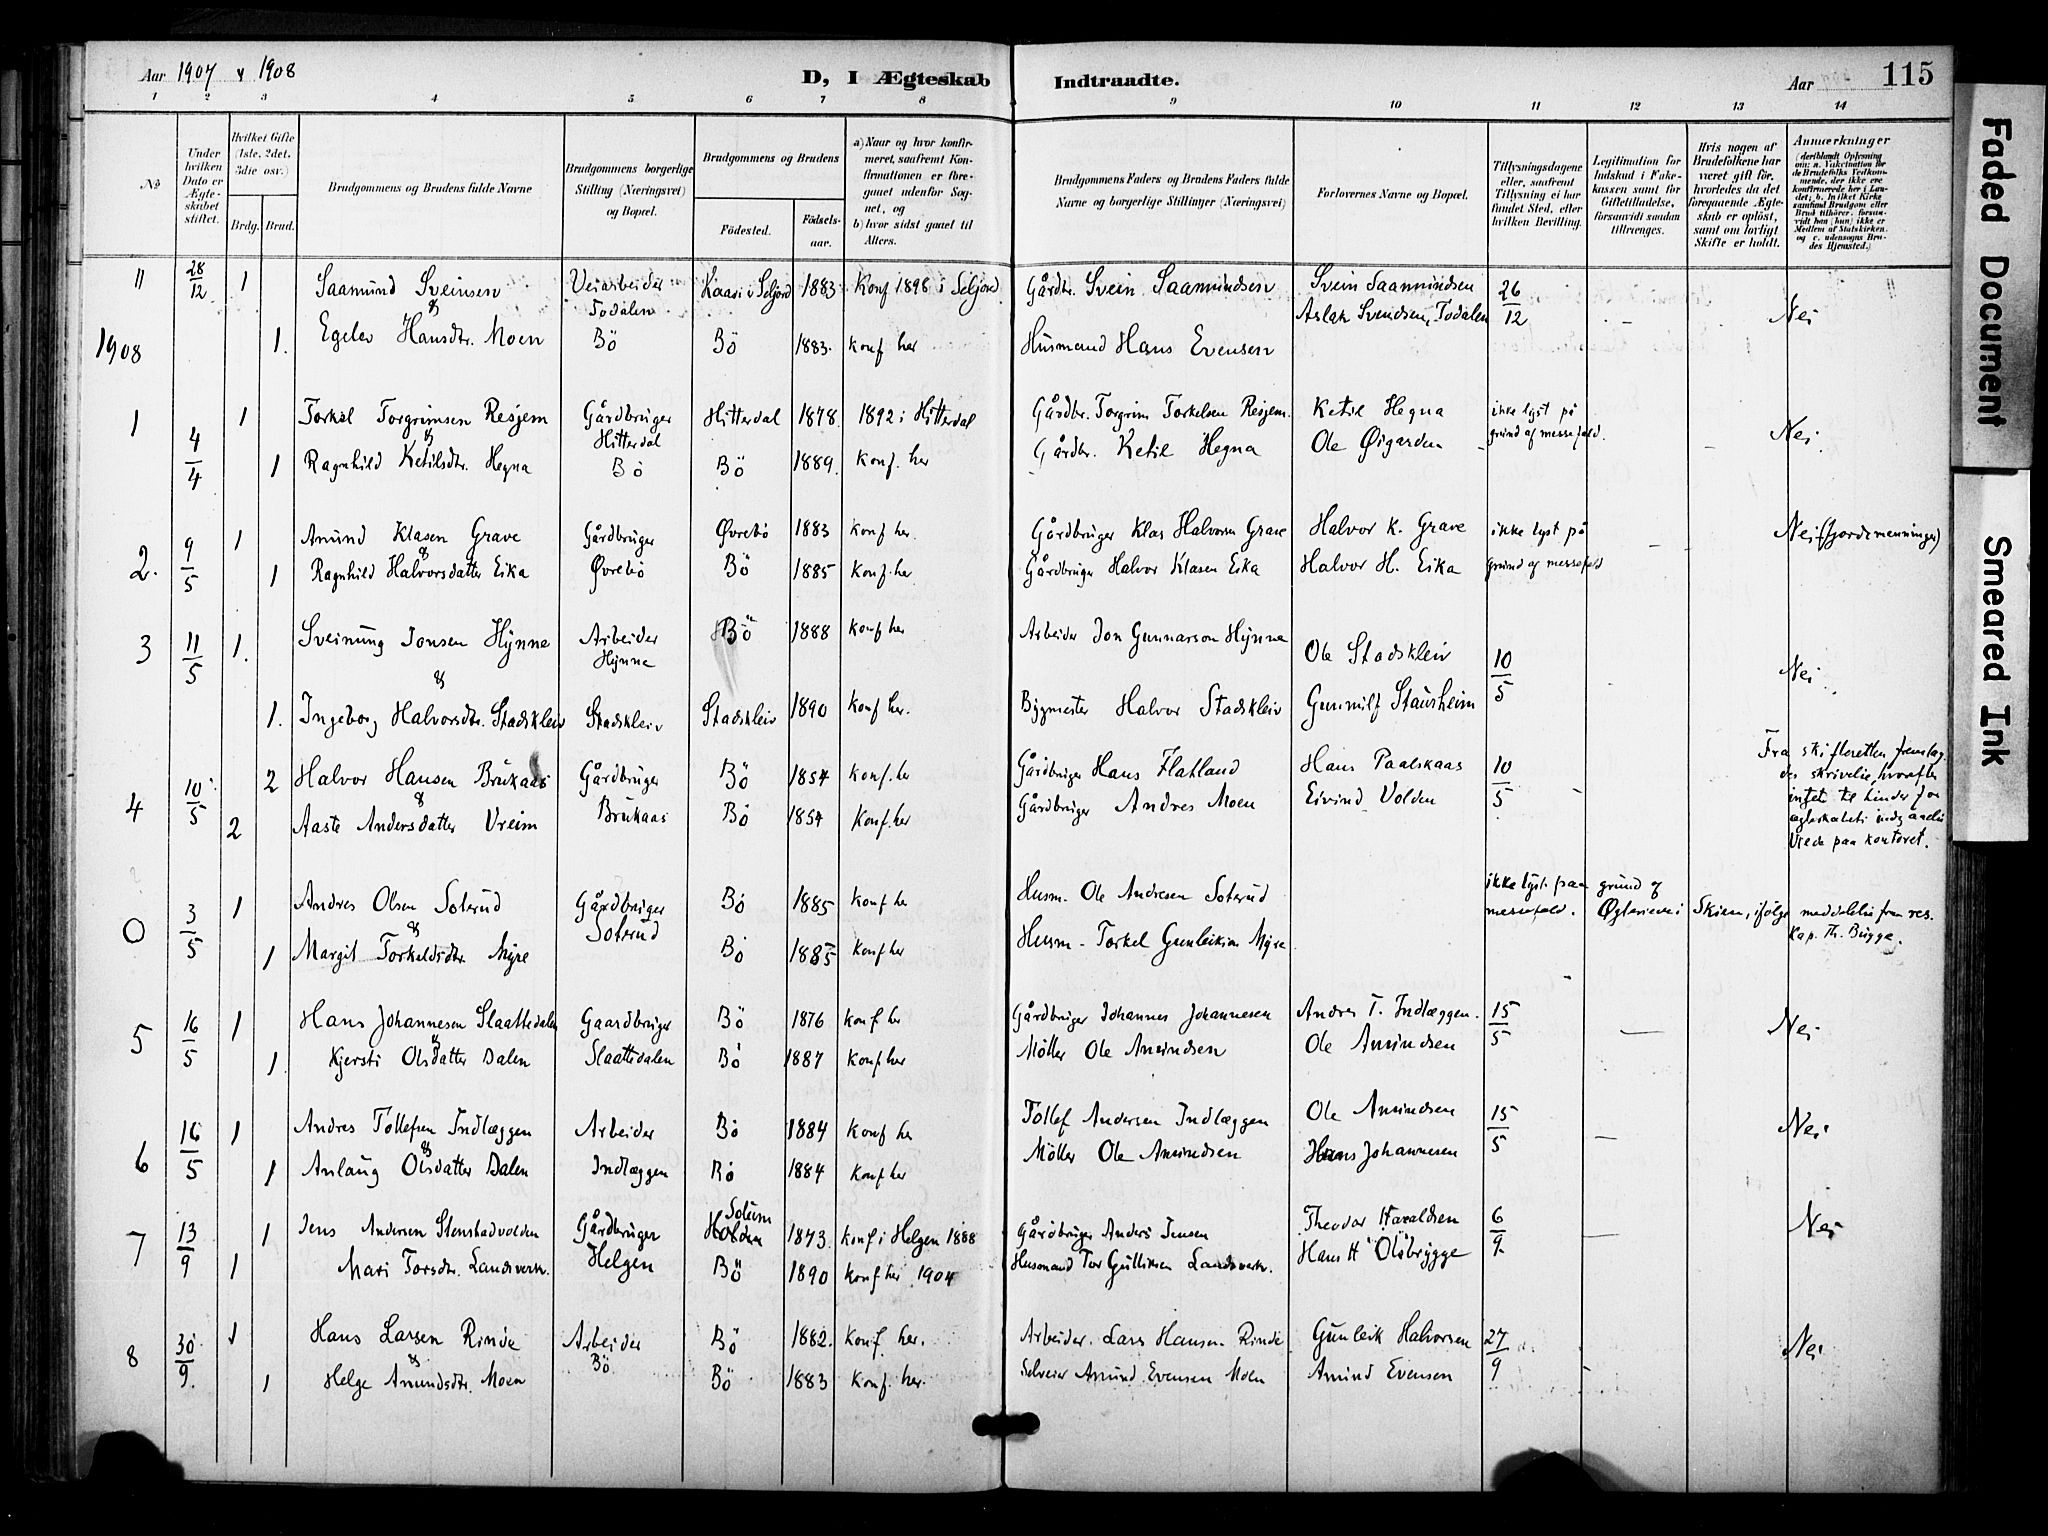 Aar 1907 & 1908
D, I Ægteskab Indtraadte.
Aar 115
1 2 3 4 5 6 7 8 9 10 11 12 13 14
No
Under hvilken Dato er Ægteskabet stiftet.
Hvilket Gifte (1ste, 2det, 3die osv.)
Brdg. Brud.
Brudgommens og Brudens fulde Navne
Brudgommens borgerlige Stilling (Næringsvei) og Bopæl.
Brudgommens og Brudens
Fødested.
Fødselsaar.
a) Naar og hvor konfirmeret, saafremt Konfirmationen er foregaaet udenfor Sognet, og
b) hvor sidst gaaet til Alters.
Brudgommens Faders og Brudens Faders fulde Navne og borgerlige Stillinger (Næringsvei)
Forlovernes Navne og Bopæl.
Tillysningsdagene eller, saafremt Tillysning ei har fundet Sted, efter hvilken Bevilling.
Legitimation for Indskud i Enkekassen samt for Giftetilladelse, forsaavidt saadan tiltrænges.
Hvis nogen af Brudefolkene har været gift før, hvorledes da det foregaaende Ægteskab er opløst, samt om lovligt Skifte er holdt.
Anmærkninger
(deriblandt Oplysning om: a. Vakcination for de Brudefolks Vedkommende, der ikke ere konfirmerede her i Landet; b. hvilket Kirkesamfund Brudgom eller Brud tilhører, forsaavidt han (hun) ikke er Medlem af Statskirken, og c. udensogns Brudes Hjemsted.)
11 28/12 1 Saamund Sveinsen & Veiarbeider Todalen Kaasi i Seljord 1883 Konf 1898 i Seljord Gårdbr. Svein Saamundsen Svein Saamundsen 26/12 Nei
1 Egelev Hansdtr. Moen Bö Bö 1883 konf her Husmand Hans Evensen Aslak Svendsen, Todalen
1908
1 4/4 1 Torkel Torgrimsen Resjem & Gårdbruger Hitterdal Hitterdal 1878 1892 i Hitterdal Gårdbr. Torgrim Torkelsen Resjem. Ketil Hegna ikke lyst på grund af messefald. Nei
1 Ragnhild Ketilsdtr. Hegna Bö Bö 1889 konf. her Gårdbr. Ketil Hegna Ole Øigarden
2. 9/5 1 Amund Klasen Grave & Gårdbruger Øvrebø 1883 konf her. Gårdbruger Klas Halvorsen Grave Halvor K. Grave ikke lyst på grund af messefald Nei (fjordmenninger)
1 Ragnhild Halvorsdatter Eika Øvrebö Bö 1885 konf. her Gårdbruger Halvor Klasen Eika Halvor H. Eika
3 11/5 1. Sveinung Jonsen Hynne & Arbeider Hynne Bö 1888 konf her Arbeider Jon Gunnarson Hynne Ole Stadskleiv 10/5 Nei
1. Ingeborg Halvorsdtr. Stadskleiv Stadskleiv Stadskleiv 1890 konf her. Bygmester Halvor Stadskleiv Stausheim
4 10/5 2 Halvor Hansen Brukaas & Gårdbruger Brukaas Bö 1854 konf. her Gårdbruger Hans Flatland Hans Paalskaas 10/5
2 Aaste Andersdatter Vreim Bö 1854 konf. her Gårdbruger Andres Moen Eivind Volden
Fra skifteretten fremlagdes skrivelse, hvorefter intet til hinder for ægteskabets indgaaelse
Viede paa kontoret.
0 3/5 1 Andres Olsen Soterud & Gårdbruger Soterud Bö 1885 konf her Husm. Ole Andresen Soterud ikke lyst paa grund af messefald. i Skien, ifølge meddelelse fra res. kap. Th. Bugge.
1 Margit Torkeldsdtr. Myre Bö 1885 konf her Husm. Torkel Gunleiksen Myre
5 16/5 1 Hans Johannesen Slaattedalen & Gaardbruger Slaattedalen Bö 1876 konf her Gårdbruger Johannes Johannesen Andres T. Indlæggen. 15/5 Nei
1 Kjersti Olsdatter Dalen Bö 1887 konf her Møller Ole Amundsen Ole Amundsen
6 16/5 1 Andres Tollefsen Indlæggen & Arbeider Indlæggen Bö 1884 konf her Tollef Andersen Indlæggen Ole Amundsen 15/5 Nei
1 Anlaug Olsdatter Dalen Bö 1884 konf her Møller Ole Amundsen Hans Johannesen
7 13/9 1 Jens Andersen Stenstadvolden Gårdbruger Helgen Solum Holden 1873 konf i Helgen 1888 Gårdbruger Anders Jensen Theodor Haraldsen 6/9 Nei
1 Mari Torsdtr. Landsverk. Bö 1890 konf her 1904 Husmand Tor Gulliksen Landsverk. Hans H Olsbrygge
8 30/9 1 Hans Larsen Rinde & Arbeider Bö Bö 1882 konf. her. Arbeider. Lars Hansen Rinde Gunleik Halvorsen 27/9 Nei
1 Helge Amundsdtr. Moen Bö 1883 konf. her. Selveier Amund Evensen Moen Amund Evensen
Faded Document
Smeared Ink